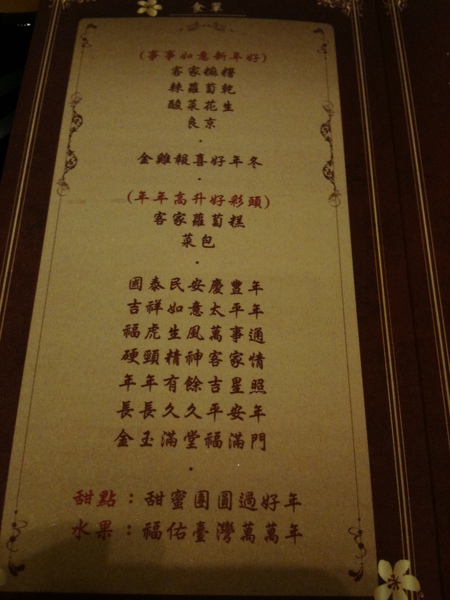 食單
(事事如意新年好)
客家麻糬
辣蘿蔔乾
酸菜花生
良京
金雞報喜好年冬
(年年高升好彩頭)
客家蘿蔔糕
菜包
國泰民安慶豐年
吉祥如意太平年
福虎生風萬事通
硬頸精神客家情
年年有餘吉星照
長長久久平安年
金玉滿堂福滿門
甜點：甜蜜團圓過好年
水果：福佑臺灣萬萬年